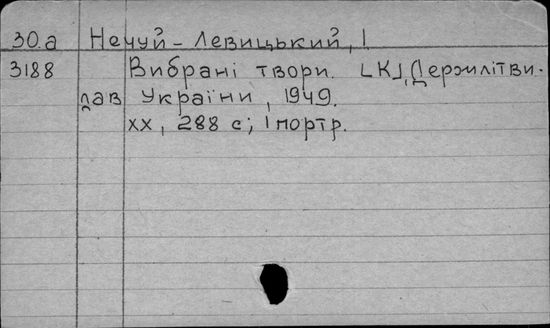 30.а Нечуй-Левицький, І
3188 Вибрані твори. [К], Держлітви-
лав України, 1949.
хх, 288 с; 1 портр.